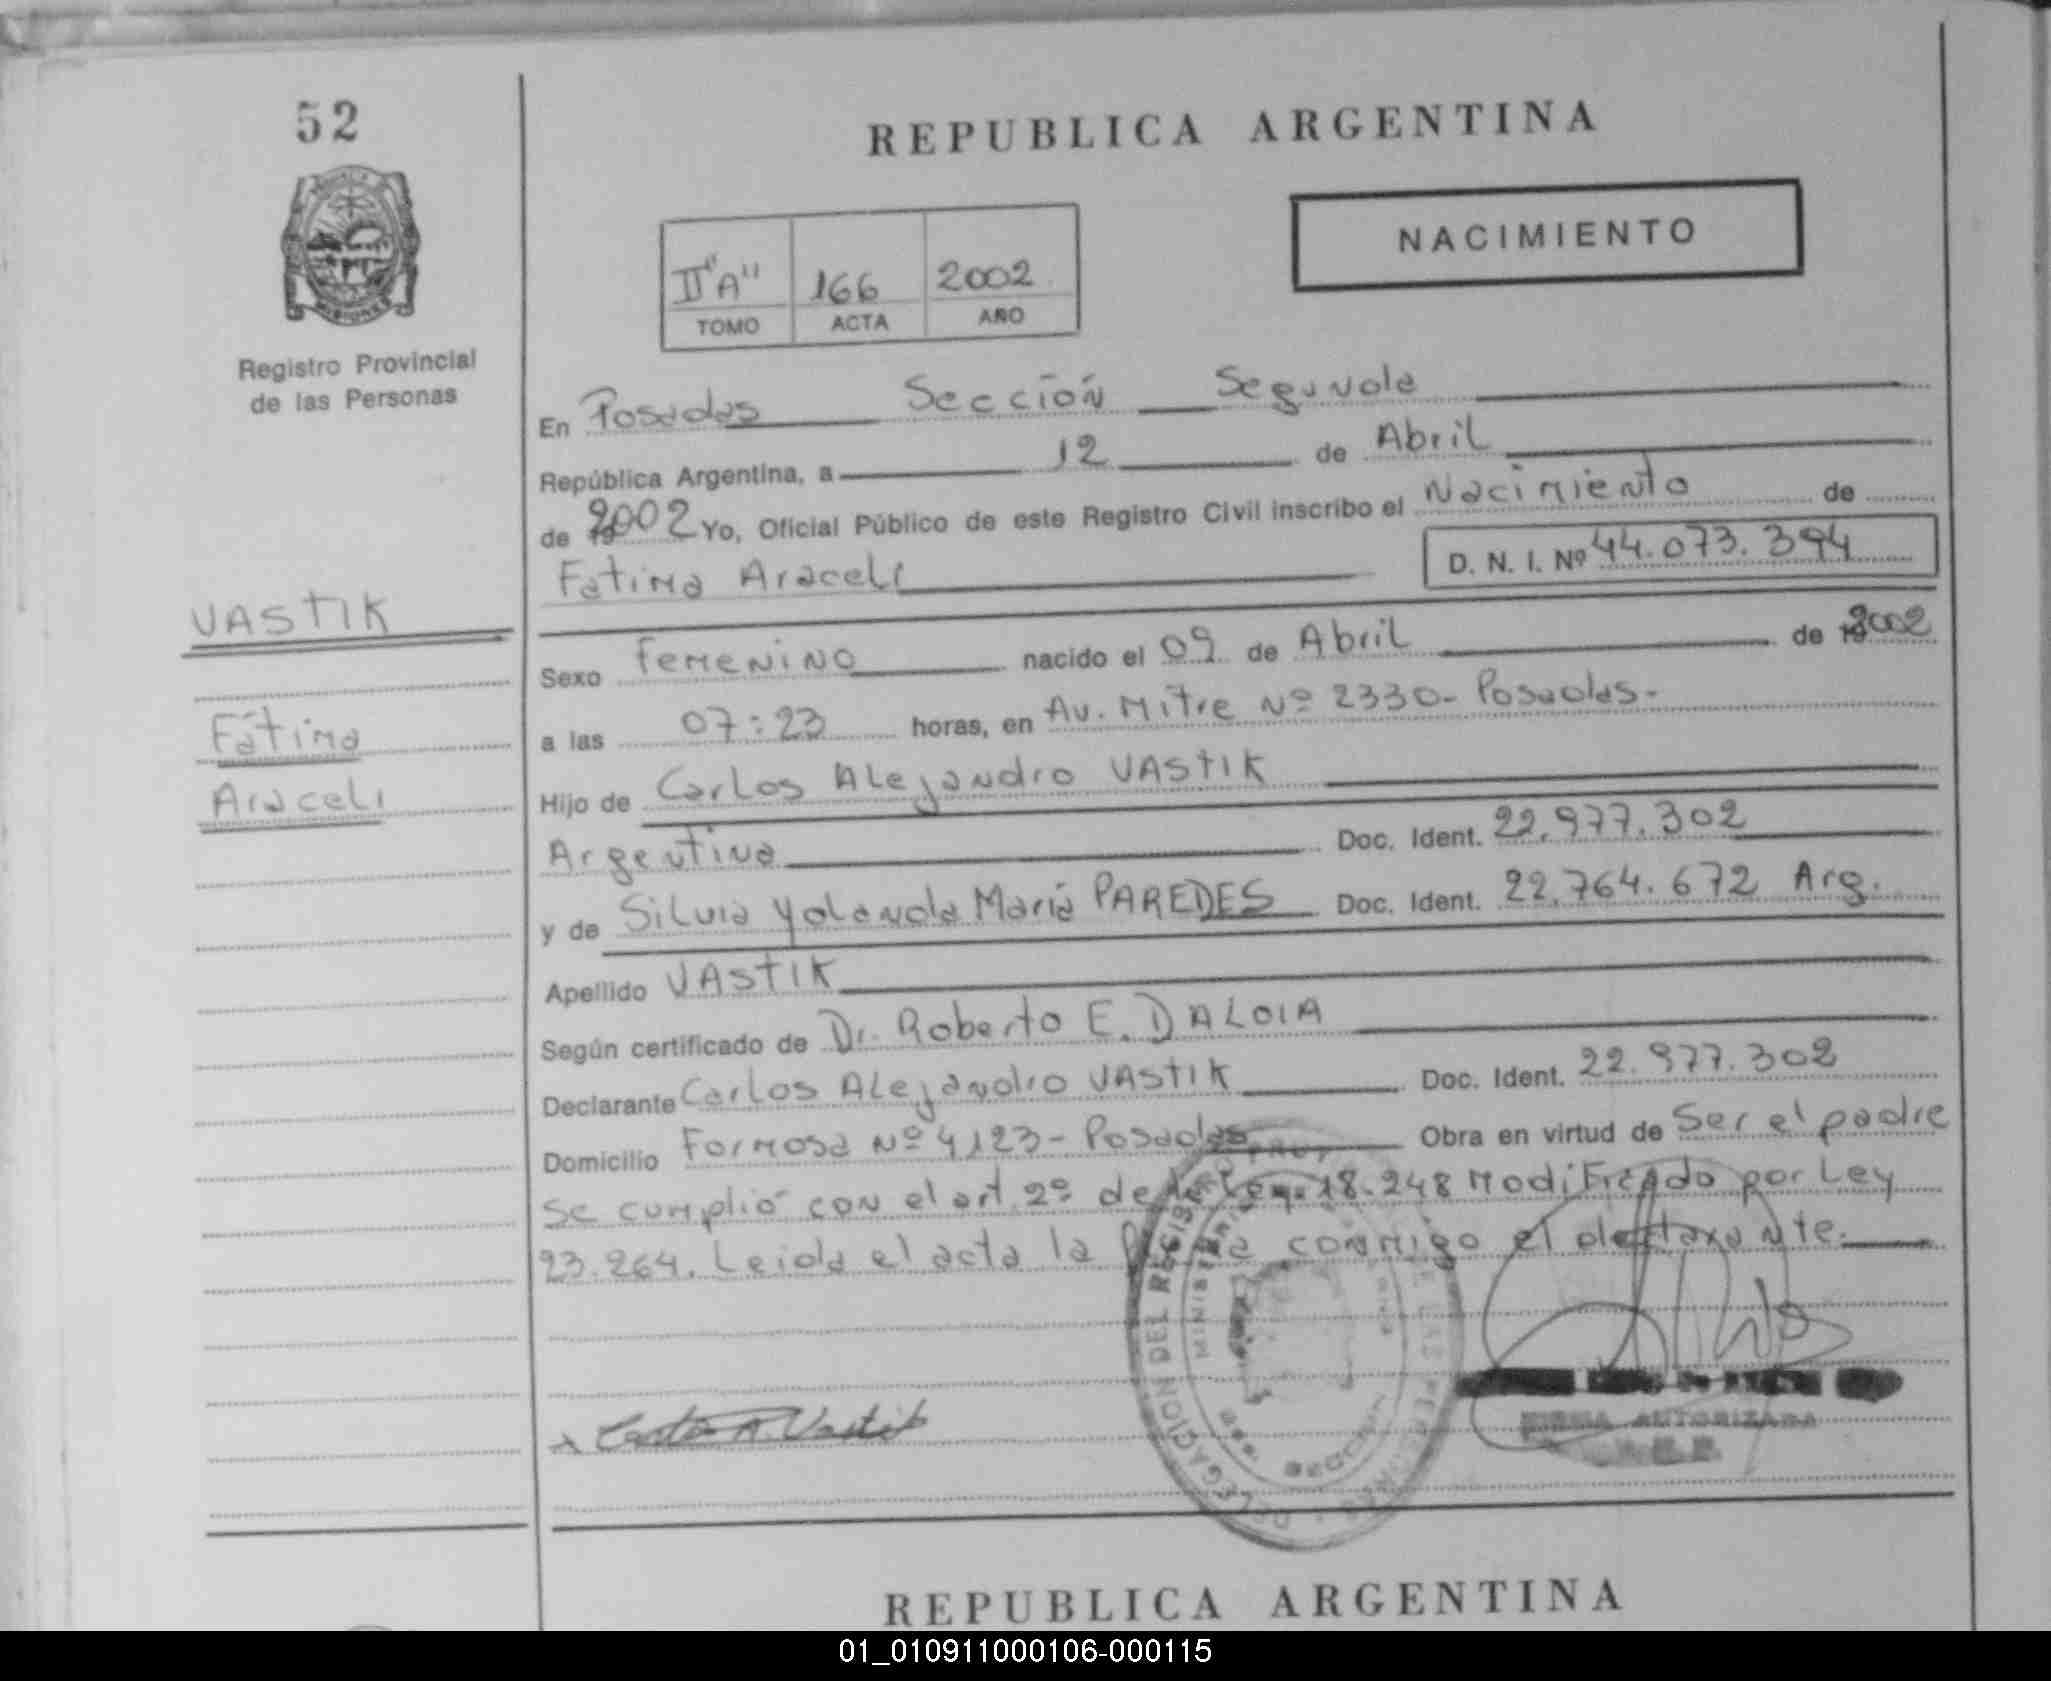 52
REPUBLICA ARGENTINA
NACIMIENTO
II "A" 166 2002
TOMO ACTA AÑO
Registro Provincial
de las Personas
En Posadas Sección Segunda
República Argentina, a 12 de Abril
de 2002 Yo, Oficial Público de este Registro Civil inscribo el Nacimiento de
Fatima Araceli D. N. I. Nº 44.073.394
VASTIK
Fátima
Araceli
Sexo Femenino nacido el 09 de Abril de 2002
a las 07:23 horas, en Av. Mitre Nº 2330- Posadas-
Hijo de Carlos Alejandro VASTIK
Argentina Doc. Ident. 22.977.302
y de Silvia Yolanda María PAREDES Doc. Ident. 22.764.672 Arg.
Apellido VASTIK
Según certificado de Dr. Roberto E. DALOIA
Declarante Carlos Alejandro VASTIK Doc. Ident. 22.977.302
Domicilio Formosa Nº 4123- Posadas Obra en virtud de Ser el padre
Se cumplió con el art. 2º de la Ley 18.248 Modificado por Ley
23.264. Leida el acta la firma conmigo el declarante.
DELEGACION DEL REGISTRO
x Carlos A. Vastik
FIRMA AUTORIZADA
REPUBLICA ARGENTINA
01_010911000106-000115